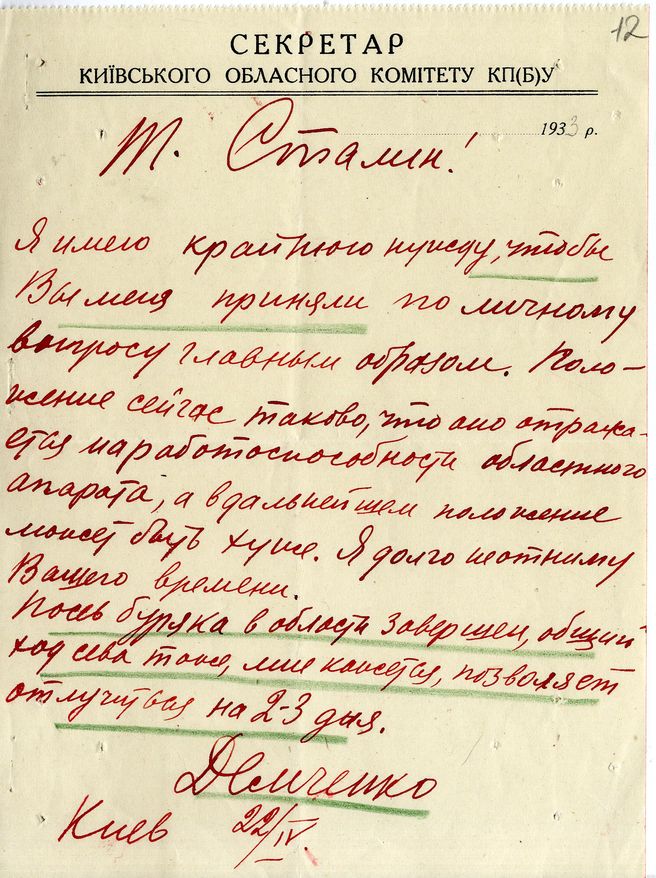 12
СЕКРЕТАР
КИЇВСЬКОГО ОБЛАСНОГО КОМІТЕТУ КП(Б)У
1933 р.
Т. Сталин!
Я имею крайнюю нужду, чтобы
Вы меня приняли по личному
вопросу главным образом. Поло-
жение сейчас таково, что оно отража-
ется на работоспособности областного
апарата, а в дальнейшем положение
может быть хуже. Я долго неотниму
Вашего времени.
Посев буряка в области завершен, общий
ход сева тоже, мне кажется, позволяет
отлучиться на 2-3 дня.
Демченко
Киев 22/IV.